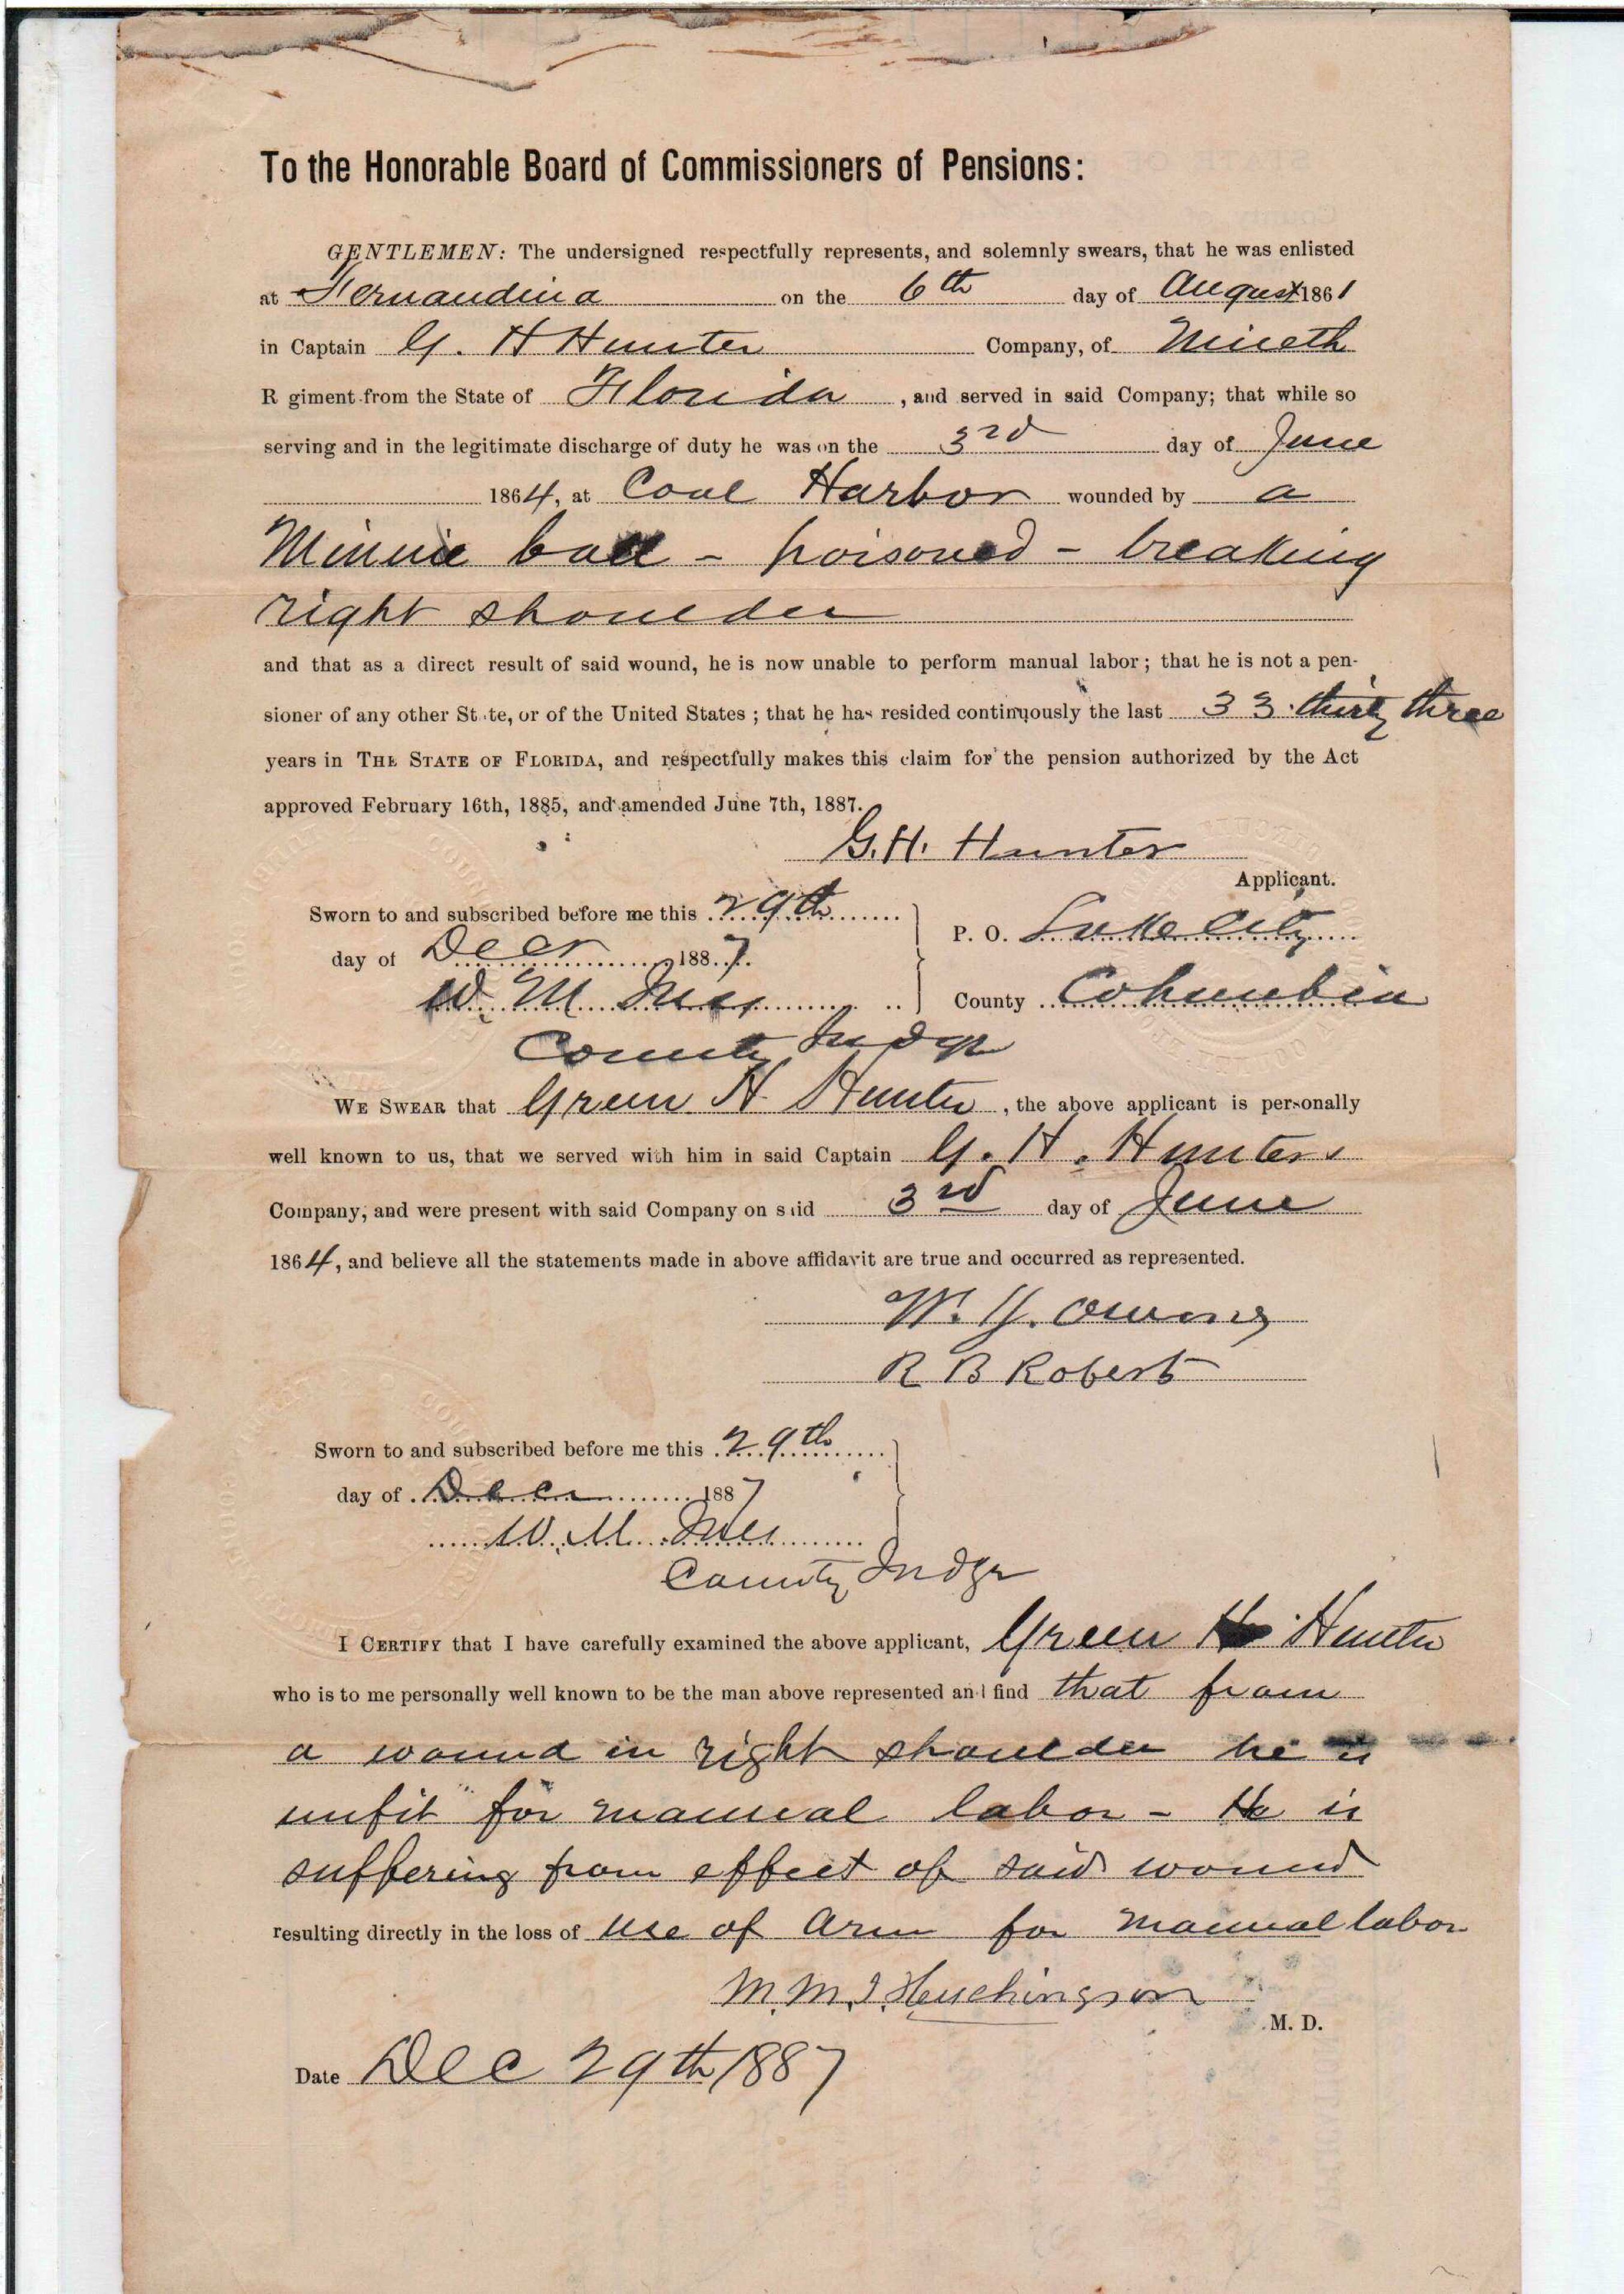 To the Honorable Board of Commissioners of Pensions:
GENTLEMEN: The undersigned respectfully represents, and solemnly swears, that he was enlisted
at Fernandina on the 6th day of August 1861
in Captain G. H Hunter Company, of Nineth
R giment from the State of Florida, and served in said Company; that while so
serving and in the legitimate discharge of duty he was on the 3rd day of June
1864, at Coal Harbor wounded by a
Minnie ball - poisoned - breaking
right shoulder
and that as a direct result of said wound, he is now unable to perform manual labor; that he is not a pen-
sioner of any other St te, or of the United States; that he has resided continuously the last 33 thirty three
years in THE STATE OF FLORIDA, and respectfully makes this claim for the pension authorized by the Act
approved February 16th, 1885, and amended June 7th, 1887.
G. H. Hunter
Applicant.
Sworn to and subscribed before me this 29th
day of Decr 1887.
P. O. Lake City
W. M. Ives
County Columbia
County Judge
WE SWEAR that Green H Hunter, the above applicant is personally
well known to us, that we served with him in said Captain G. H. Hunters
Company, and were present with said Company on said 3rd day of June
1864, and believe all the statements made in above affidavit are true and occurred as represented.
W. Y. Owens
R B Roberts
Sworn to and subscribed before me this 29th
day of Decr 1887
W. M. Ives
County Judge
I CERTIFY that I have carefully examined the above applicant, Green H Hunter
who is to me personally well known to be the man above represented and find that from
a wound in right shoulder he is
unfit for manual labor - He is
suffering from effect of said wound
resulting directly in the loss of use of Arm for manual labor
M. M. J. Hutchingson
M. D.
Date Dec 29th 1887